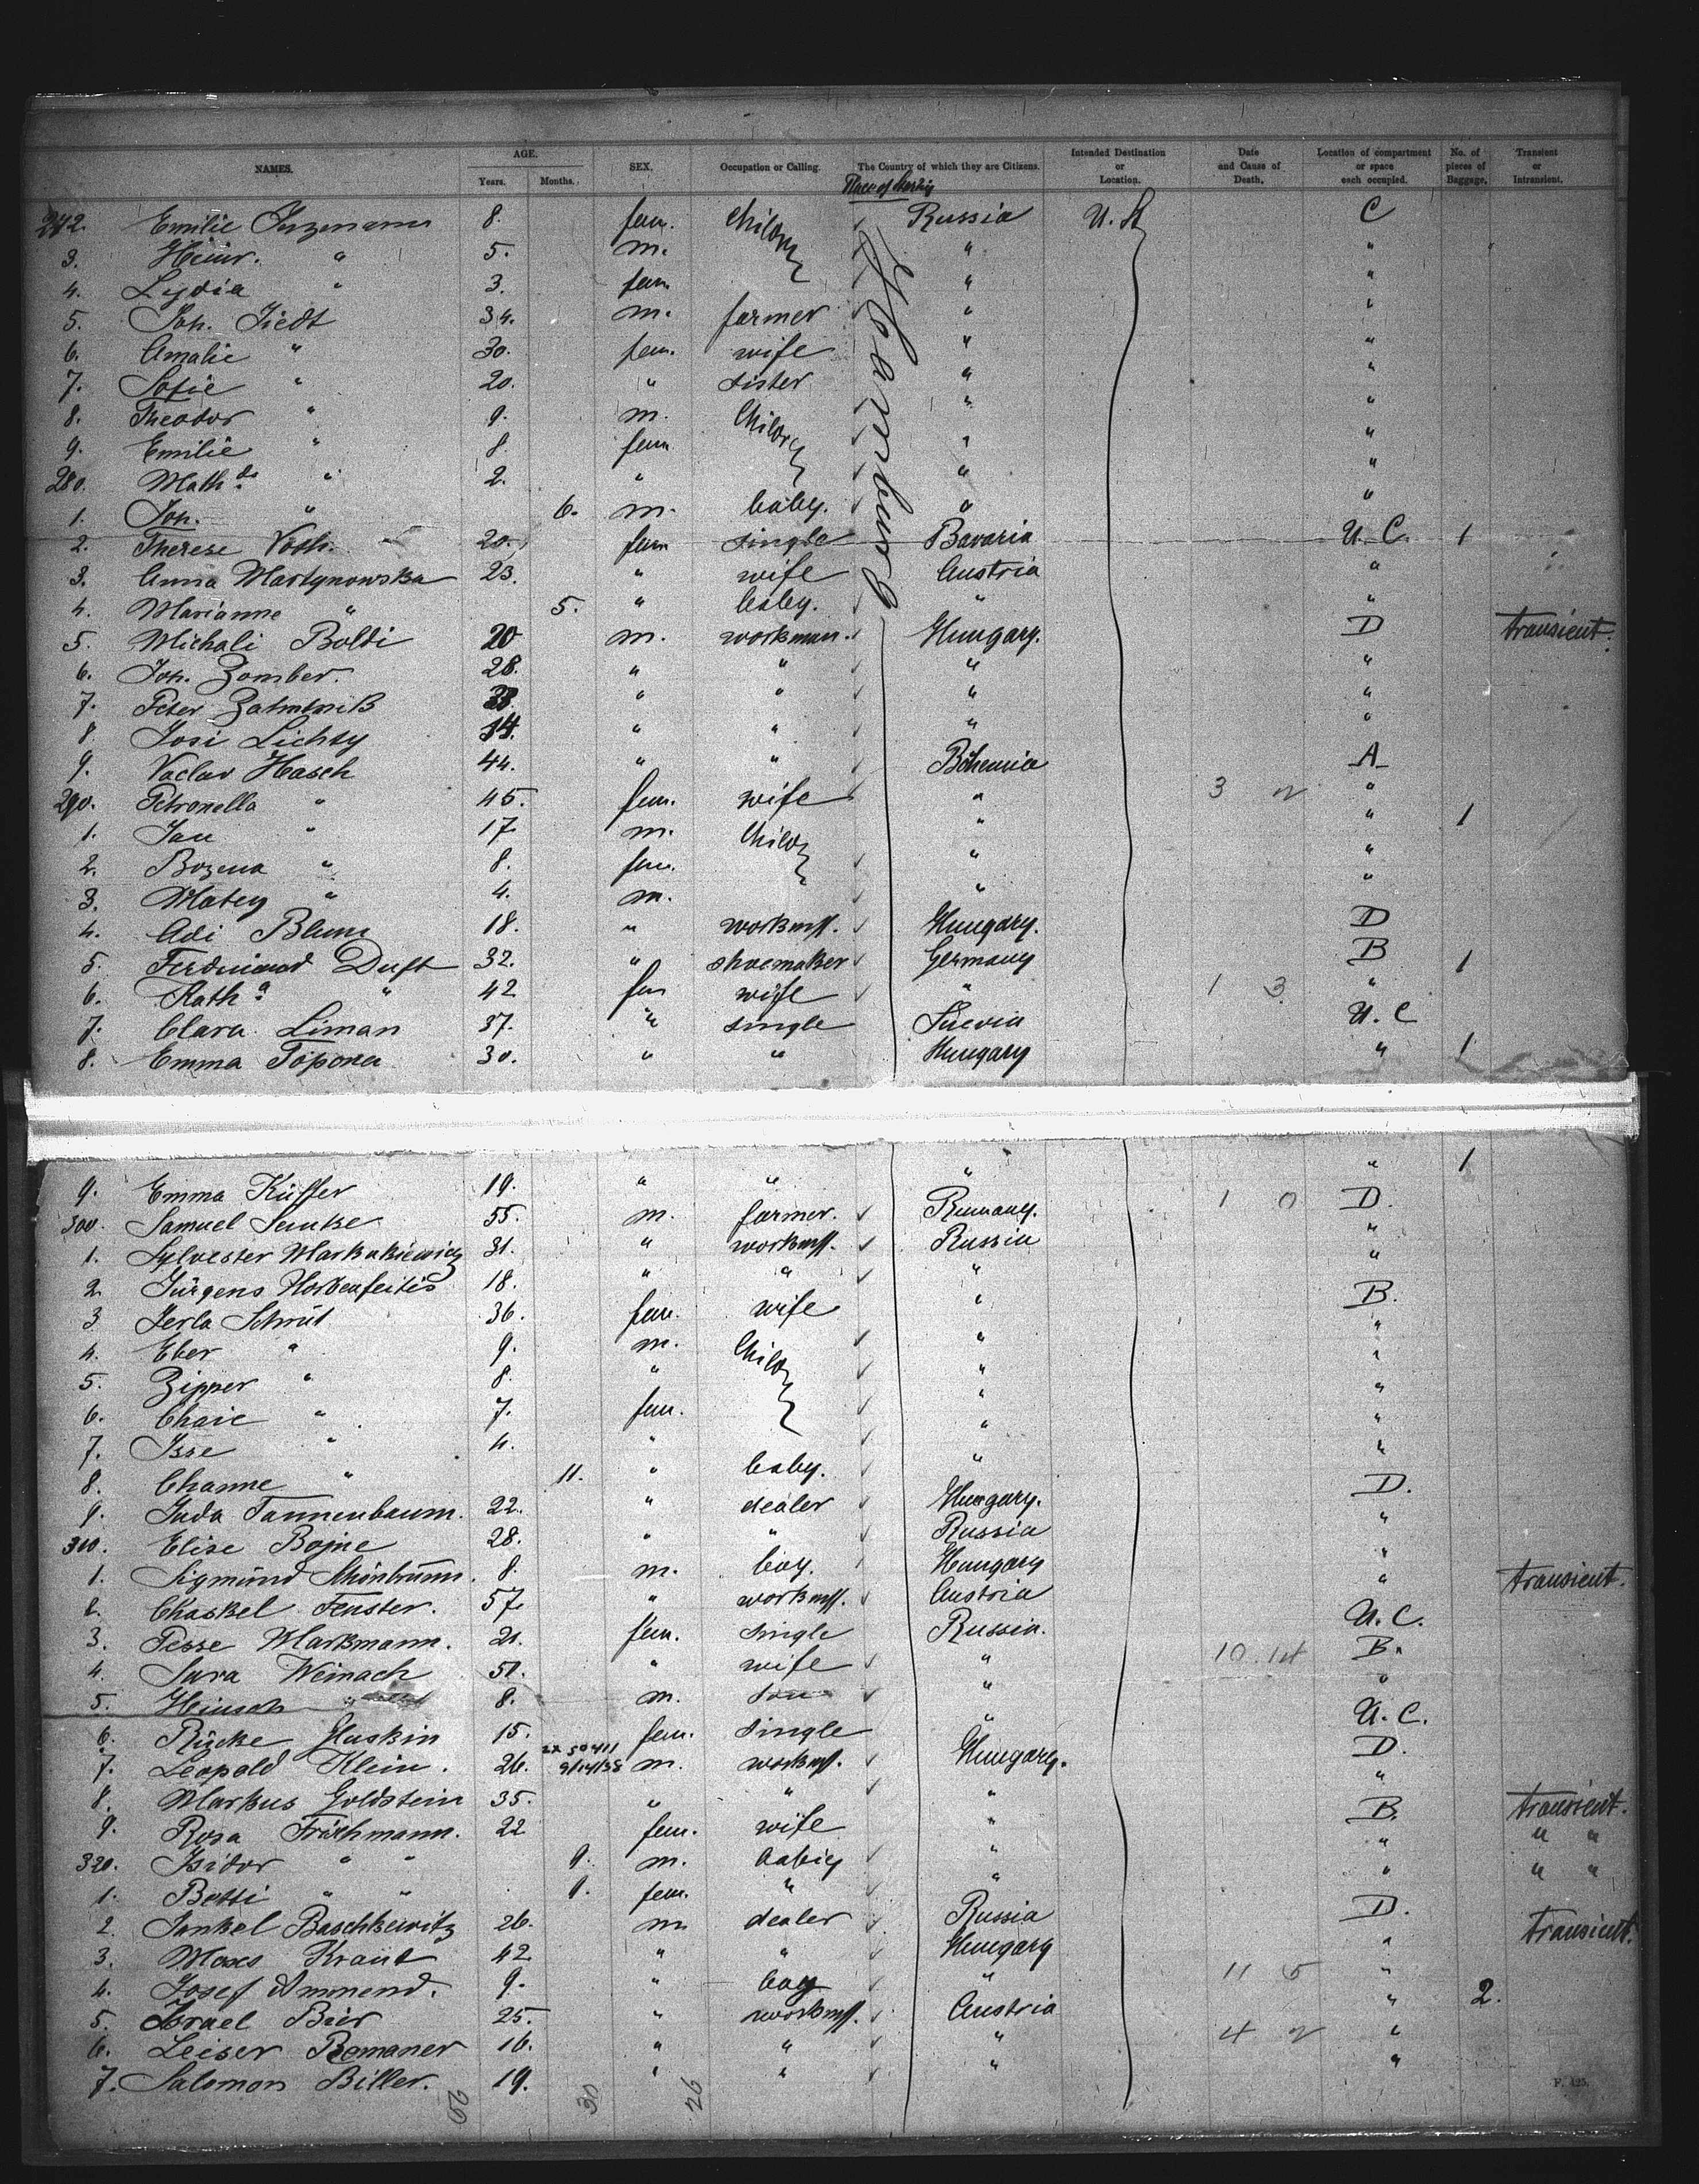 NAMES. AGE. Years. Months. SEX. Occupation or Calling. The Country of which they are Citizens. Intended Destination or Location. Date and Cause of Death. Location of compartment or space each occupied. No. of pieces of Baggage. Transient or Intransient.
Place of
Hamburg
242. Emilie 8. fem. Child Russia U. S. C
3. Heinr. " 5. m. " "
4. Lydia " 3. fem " "
5. Joh. Tiedt 34. m. farmer " "
6. Amalie " 30. fem. wife " "
7. Sofie " 20. " sister " "
8. Theodor " 9. m. Child " "
9. Emilie " 8. fem " "
280. Math de " 2. " " "
1. Joh. " 6. m. baby. " "
2. Therese 20. fem single Bavaria U. C. 1
3. Anna Martynowska 23. " wife Austria "
4. Marianne " 5. " baby. " "
5. Michali Boldi 20 m. workman. Hungary. D transient.
6. Joh. Zomber. 28. " " " "
7. Peter 28. " " " "
8. Josi Lichty 14. " " " "
9. Vaclav Hasch 44. " " Bohemia A
290. Petronella " 45. fem. wife " 3 2 "
1. Jan " 17. m. Child " " 1
2. Bozena " 8. fem. " "
3. Matey " 4. m. " "
4. Adi Blum 18. " workmn. Hungary. D
5. Ferdinand Duft 32. " shoemaker Germany B 1
6. Kath a " 42 fem wife " 1 3 "
7. Clara Liman 37. " single U. C
8. Emma Topona 30. " " Hungary " 1
9. Emma Küffer 19. " " " " 1
300. Samuel 55. m. farmer. 1 0 D.
1. Sylvester Markukiewicz 31. " workmn. Russia "
2. Jürgens 18. " " " "
3 Schmit 36. fem. wife " B.
4. Eber " 9. m. Child " "
5. Zipper " 8. " " "
6. Chaie " 7. fem. " "
7. Isse " 4. " " "
8. Channe " 11. " baby. " "
9. Juda Tannenbaum. 22. " dealer Hungary. D.
310. Elise Bojne 28. " " Russia "
1. Sigmund Schönbrunn. 8. m. boy. Hungary "
2. Chaskel Fenster. 57. " workmn. Austria " transient.
3. Pesse Markmann. 21. fem. single Russia. U. C.
4. Sara Weinach 51. " wife " 10 14 B.
5. " 8. m. son " "
6. Rücke Gluskin 15. fem. single " U. C.
7. Leopold Klein. 26. 2X 50411 9/14/38 m. workmn. Hungary. D.
8. Markus Goldstein 35. " " " "
9. Rosa 22 fem. wife " B. transient.
320. Isidor " " 9. m. baby " " " "
1. Betti " " 1. fem. " " " " "
2. Jankel Baschkewitz 26. m. dealer Russia D.
3. Moses Kraut 42 " " Hungary " transient.
4. Josef Ammend. 9. " boy " 11 5 "
5. Israel Bier 25. " workmn. Austria " 2.
6. Leiser Romaner 16. " " " 4 2 "
7. Salomon Biller. 19. " " " "
30 26
F. 425.